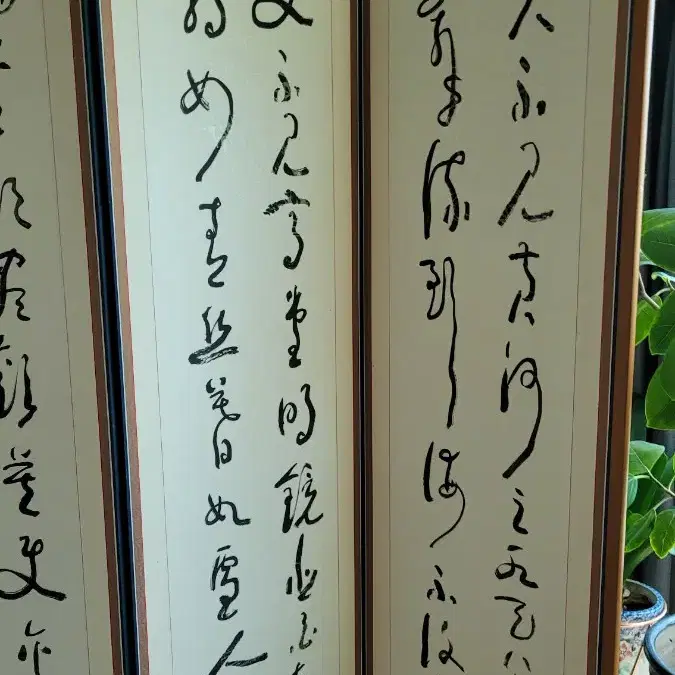 不見黃河之水天上
奔流到海不復
不見高堂明鏡悲白
朝如青絲暮如雪人
須盡歡莫使金